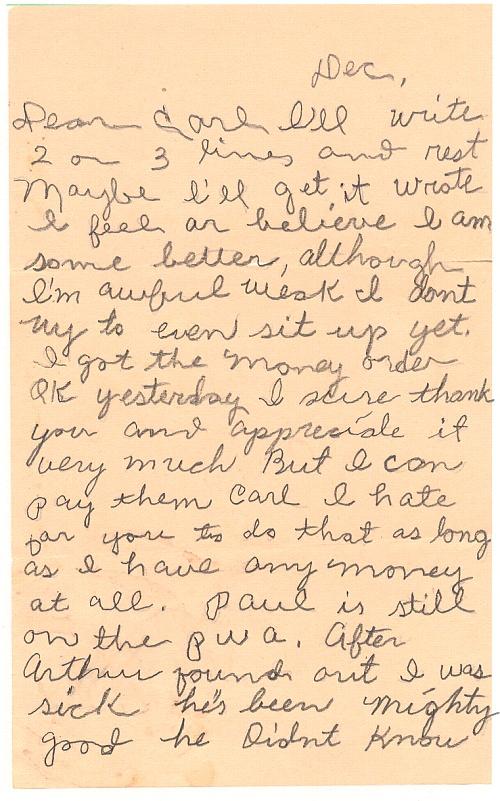 Dec,
Dear Carl I'll write
2 or 3 lines and rest
Maybe I'll get it wrote
I feel or believe I am
some better, although
I'm awful weak I dont
try to even sit up yet.
I got the money order
OK yesterday I sure thank
you and appreciate it
very much But I can
pay them Carl I hate
for you to do that as long
as I have any money
at all. Paul is still
on the P W A. After
Arthur found out I was
sick he's been mighty
good he Didnt Know